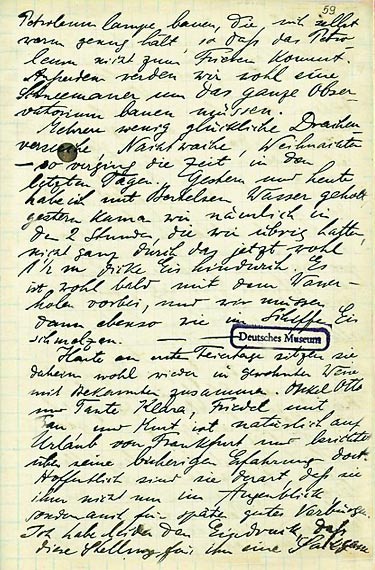 59
Petroleumlampe bauen, die sich selbst
warm genug hält, so daß das Petro-
leum nicht zum Frieren kommt.
Außerdem werden wir wohl eine
Schneemauer um das ganze Obser-
vatorium bauen müssen.
Mehrere wenig glückliche Drachen-
versuche, Nachtwache, Weihnachten
— so verging die Zeit in den
letzten Tagen. Gestern und heute
habe ich mit Bertelsen Wasser geholt
gestern kamen wir nämlich in
den 2 Stunden, die wir übrig hatten,
nicht ganz durch das jetzt wohl
1½ m dicke Eis hindurch. Es
ist wohl bald mit dem Wasser-
holen vorbei, und wir müssen
dann ebenso wie im Schiffe Eis
schmelzen.
Deutsches Museum
Heute am ersten Feiertage sitzen sie
daheim wohl wieder in gewohnter Weise
mit Bekannten zusammen. Onkel Otto
und Tante Klara, Friedel mit
und Kurt ist natürlich auf
Urlaub von Frankfurt und berichtet
über seine bisherigen Erfahrung dort.
Hoffentlich sind sie derart, daß sie
ihm nicht nur im Augenblick
sondern auch für später gutes Verbürgen.
Ich habe den Eindruck, daß
diese Stellung für ihn eine